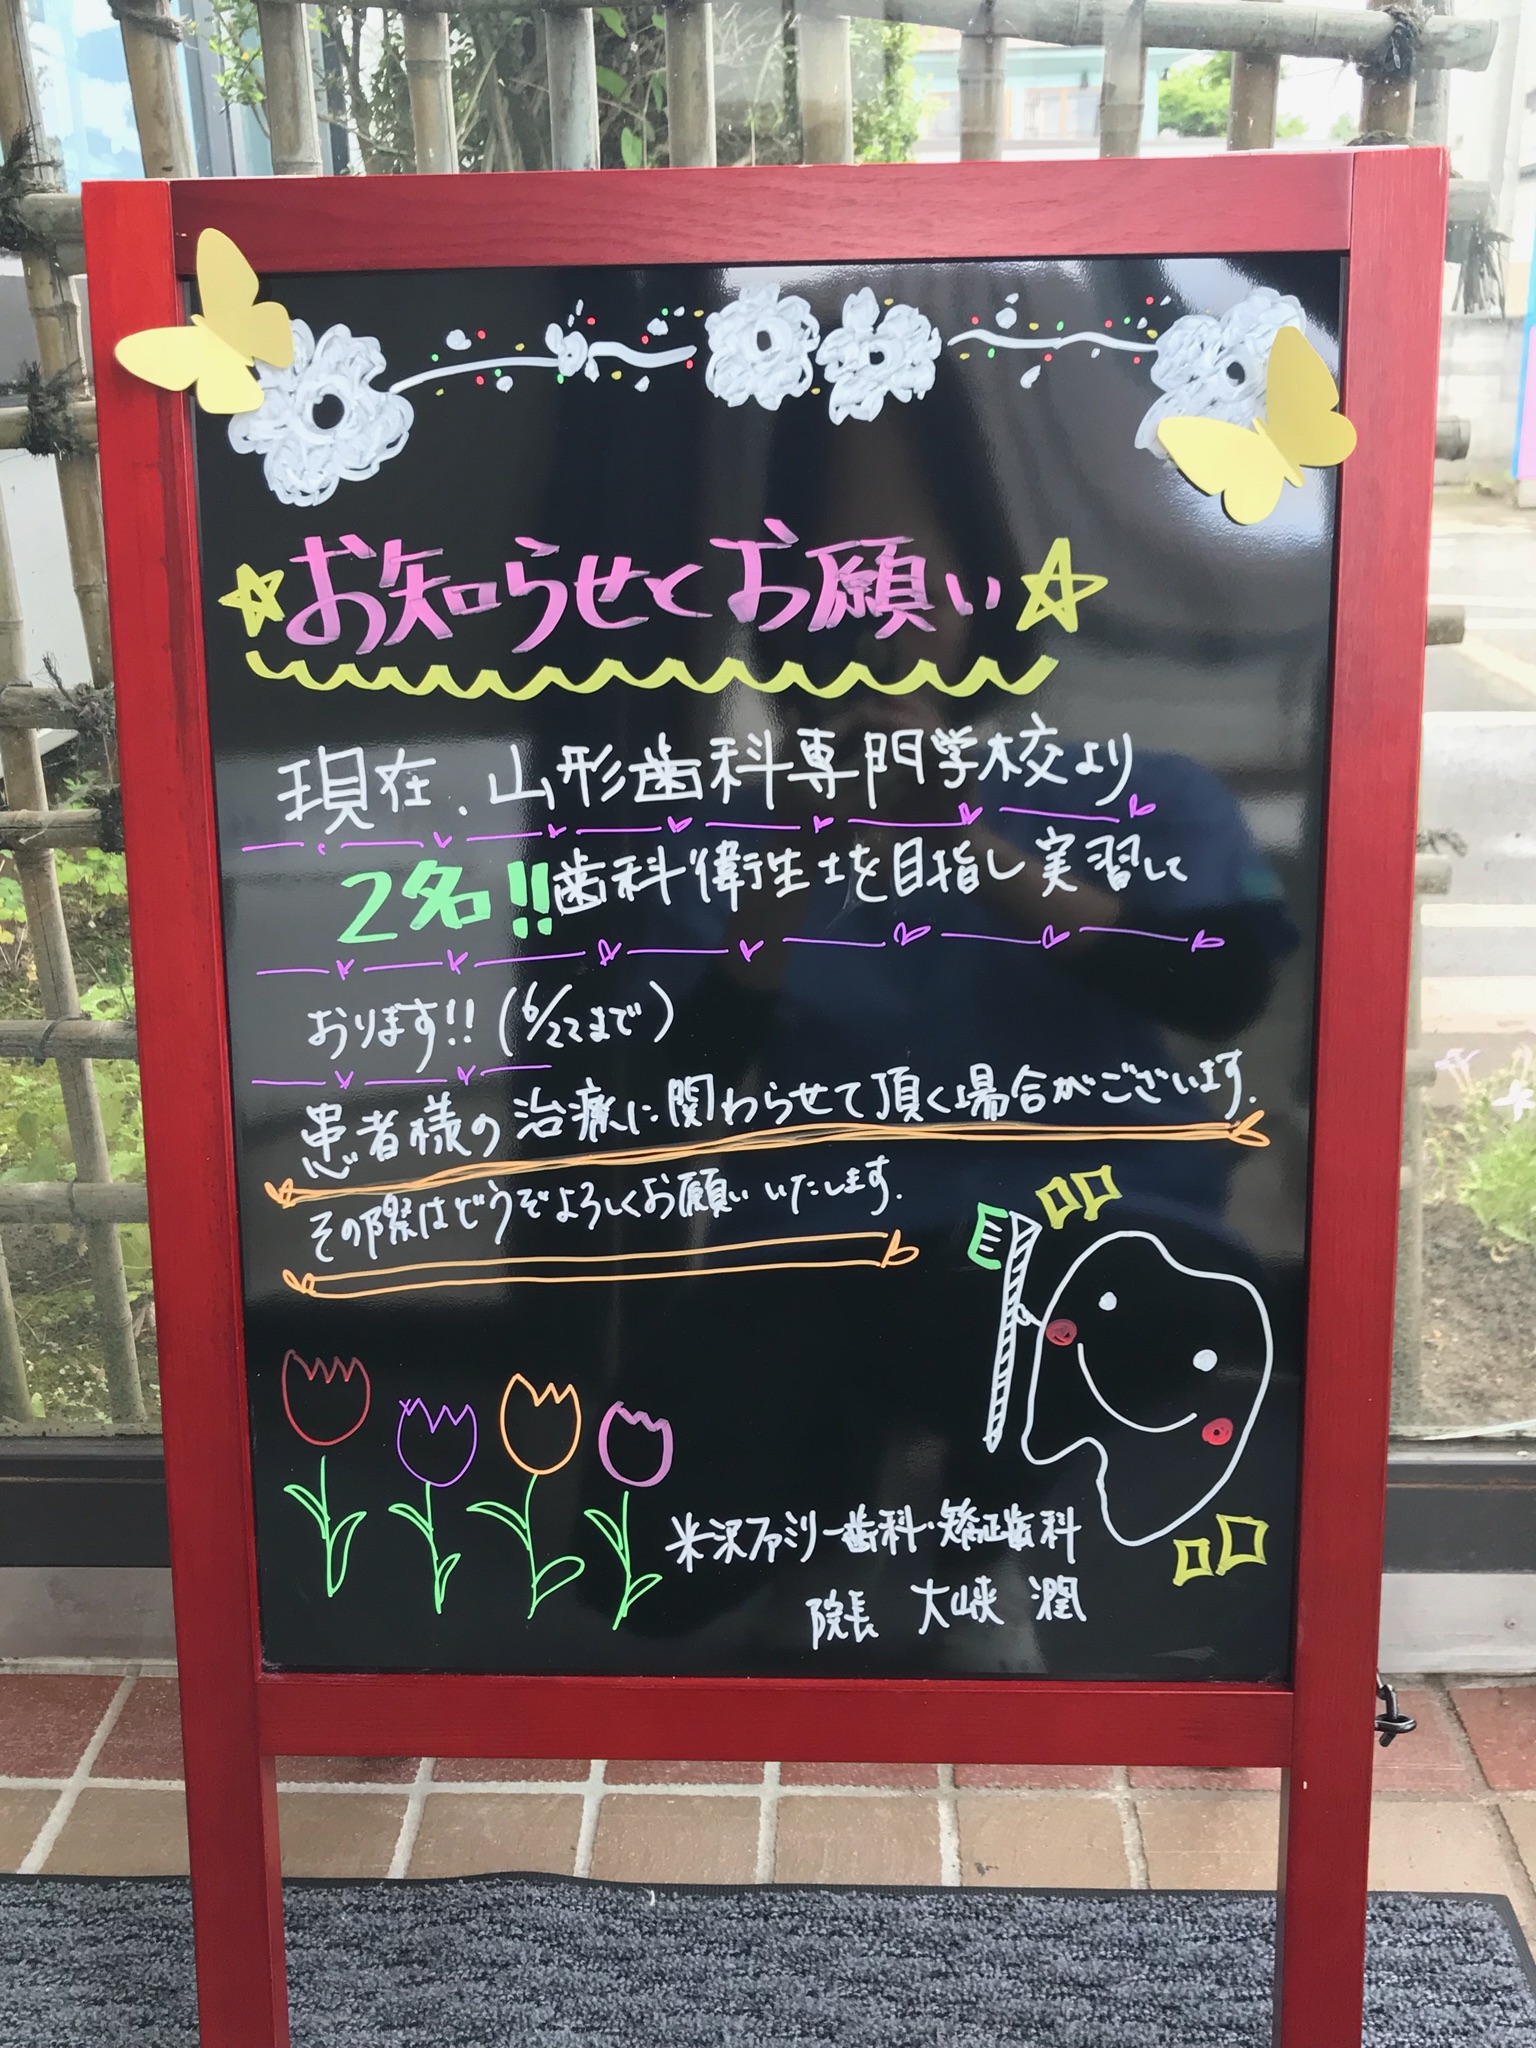 お知らせとお願い
現在、山形歯科専門学校より
2名!!歯科衛生士を目指し実習して
おります!!(6/22まで)
患者様の治療に関わらせて頂く場合がございます.
その際はどうぞよろしくお願いいたします.
米沢ファミリー歯科・矯正歯科
院長 大峡 潤